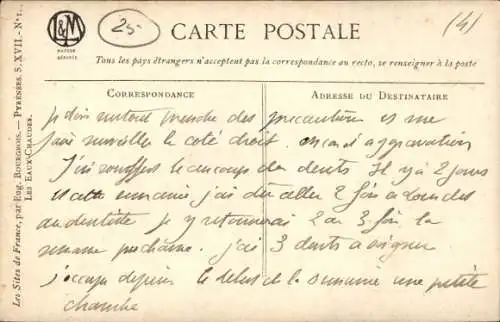 L&M
MARQUE DÉPOSÉE
25-
(4)
CARTE POSTALE
Tous les pays étrangers n'acceptent pas la correspondance au recto, se renseigner à la poste
CORRESPONDANCE
ADRESSE DU DESTINATAIRE
je dois surtout prendre des précautions et me
faire surveiller le coté droit. en cas d'aggravation
J'ai souffert beaucoup des dents Il y a 2 jours
et cette semaine j'ai dû aller 2 fois a Lourdes
au dentiste je y retournerai 2 a 3 fois la
semaine prochaine. j'ai 3 dents a soigner
j'occupe depuis le debut de la semaine une petite
chambre
Les Sites de France, par Eug. BOURGEOIS. — PYRÉNÉES. S. XVII. - N° 1.
LES EAUX-CHAUDES.